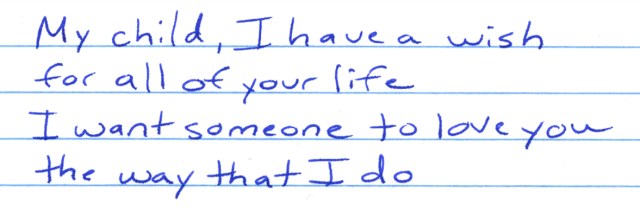 My child, I have a wish
for all of your life
I want someone to love you
the way that I do